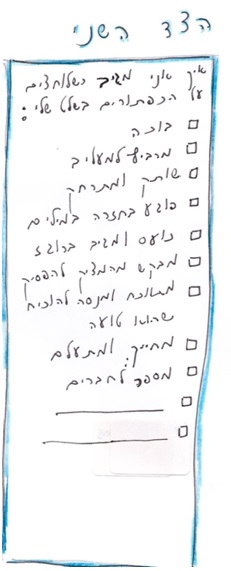 הצד השני
איך אני מגיב כשלוחצים
על הכפתורים בשלט שלי:
☐ בוכה
☐ מרביץ למעליב
☐ שותק ומתרחק
☐ פוגע בחזרה במילים
☐ כועס ומגיב ברוגז
☐ מבקש מהמציק להפסיק
☐ מתווכח ומנסה להוכיח
שהוא טועה
☐ מחייך ומתעלם
☐ מספר לחברים
☐ ____________
☐ ____________